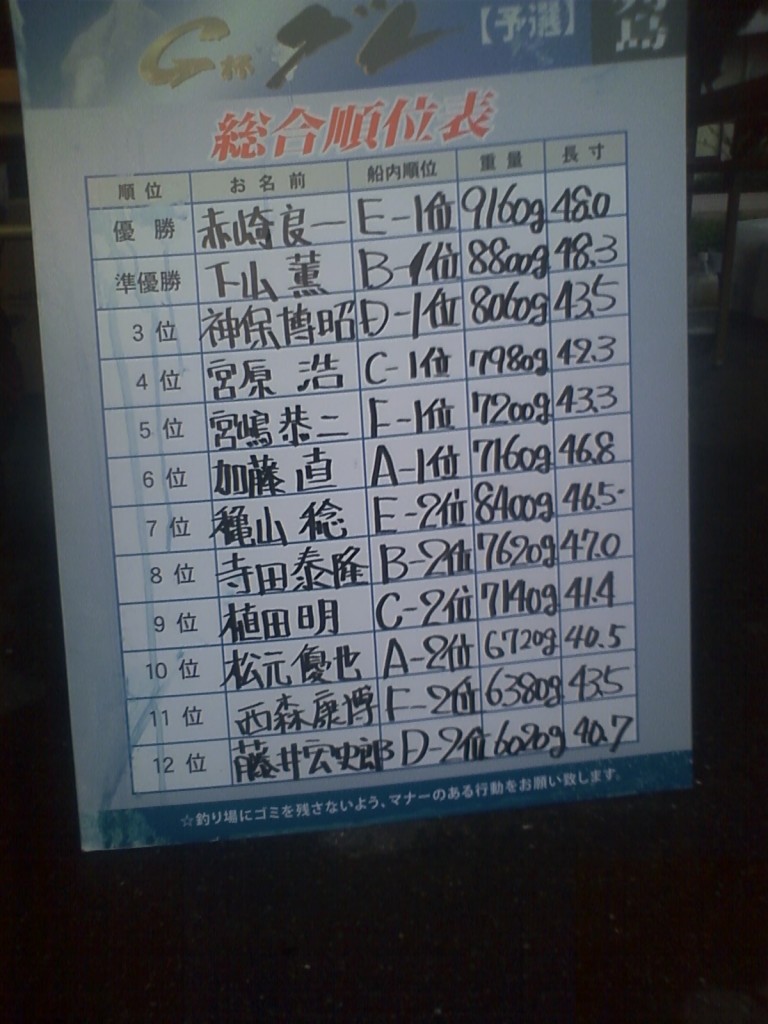 G杯グレ
【予選】
総合順位表
順位 お名前 船内順位 重量 長寸
優勝 赤崎良一 E-1位 9160g 48.0
準優勝 下山薫 B-1位 8800g 48.3
3位 神保博昭 D-1位 8060g 43.5
4位 宮原浩 C-1位 7980g 49.3
5位 宮嶋恭二 F-1位 7200g 43.3
6位 加藤直 A-1位 7160g 46.8
7位 亀山稔 E-2位 8400g 46.5
8位 寺田泰隆 B-2位 7620g 47.0
9位 植田明 C-2位 7140g 41.4
10位 松元優也 A-2位 6720g 40.5
11位 西森康博 F-2位 6380g 43.5
12位 藤井宏史郎 D-2位 6020g 40.7
☆釣り場にゴミを残さないよう、マナーのある行動をお願い致します。